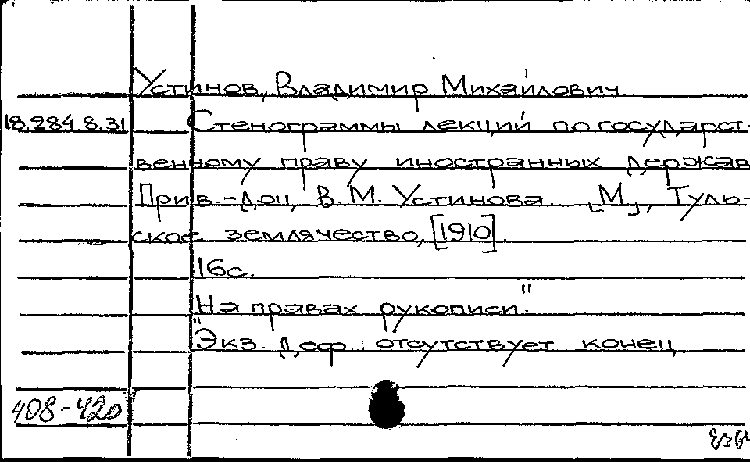 Устинов, Владимир Михайлович
18.284.8.31 Стенограммы лекций по государст-
венному праву иностранных держав
Прив.-доц. В.М. Устинова. [М], Туль-
ское землячество, [1910]
16с.
На правах рукописи."
"Экз. деф.: отсутствует конец
408-420